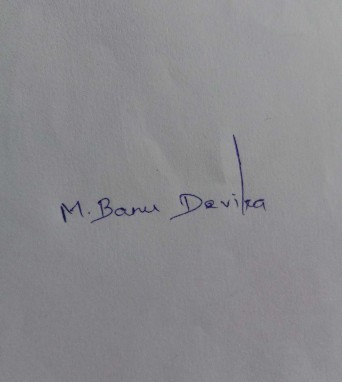 M. Banu Devika